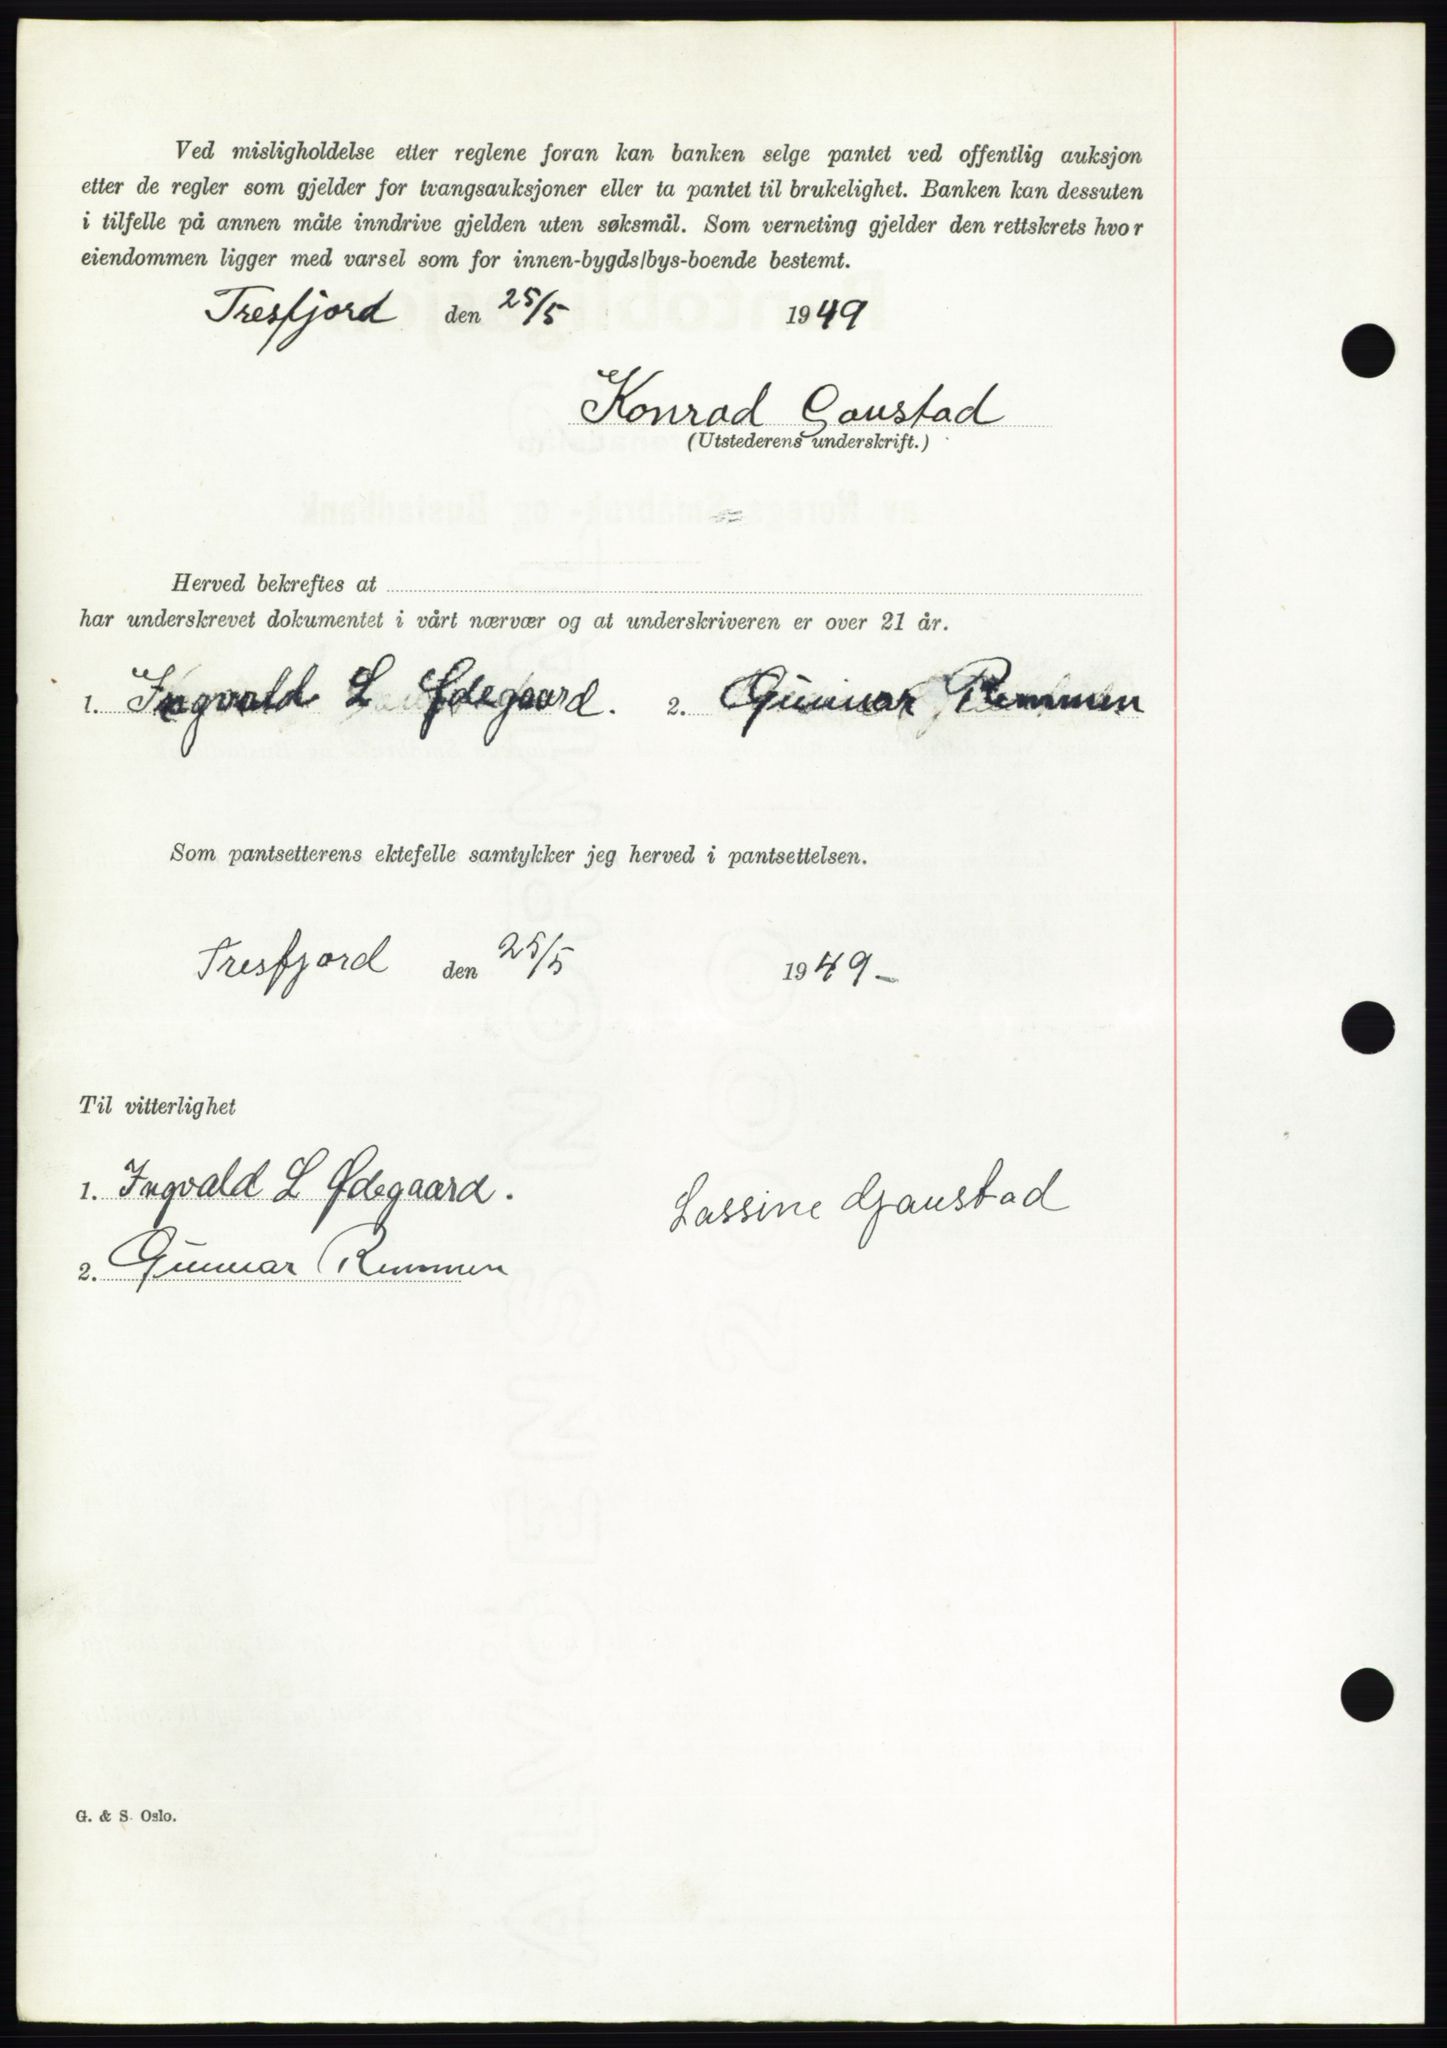 Ved misligholdelse etter reglene foran kan banken selge pantet ved offentlig auksjon
etter de regler som gjelder for tvangsauksjoner eller ta pantet til brukelighet. Banken kan dessuten
i tilfelle på annen måte inndrive gjelden uten søksmål. Som verneting gjelder den rettskrets hvor
eiendommen ligger med varsel som for innen-bygds/bys-boende bestemt.
Tresfjord den 25/5 1949
Konrad Gaustad
(Utstederens underskrift.)
Herved bekreftes at
har underskrevet dokumentet i vårt nærvær og at underskriveren er over 21 år.
1. Ingvald L Ødegaard. 2. Gunnar Remmen
Som pantsetterens ektefelle samtykker jeg herved i pantsettelsen.
Tresfjord den 25/5 1949-
Til vitterlighet
1. Ingvald L Ødegaard. Lassine Gaustad
2. Gunnar Remmen
G. & S. Oslo.